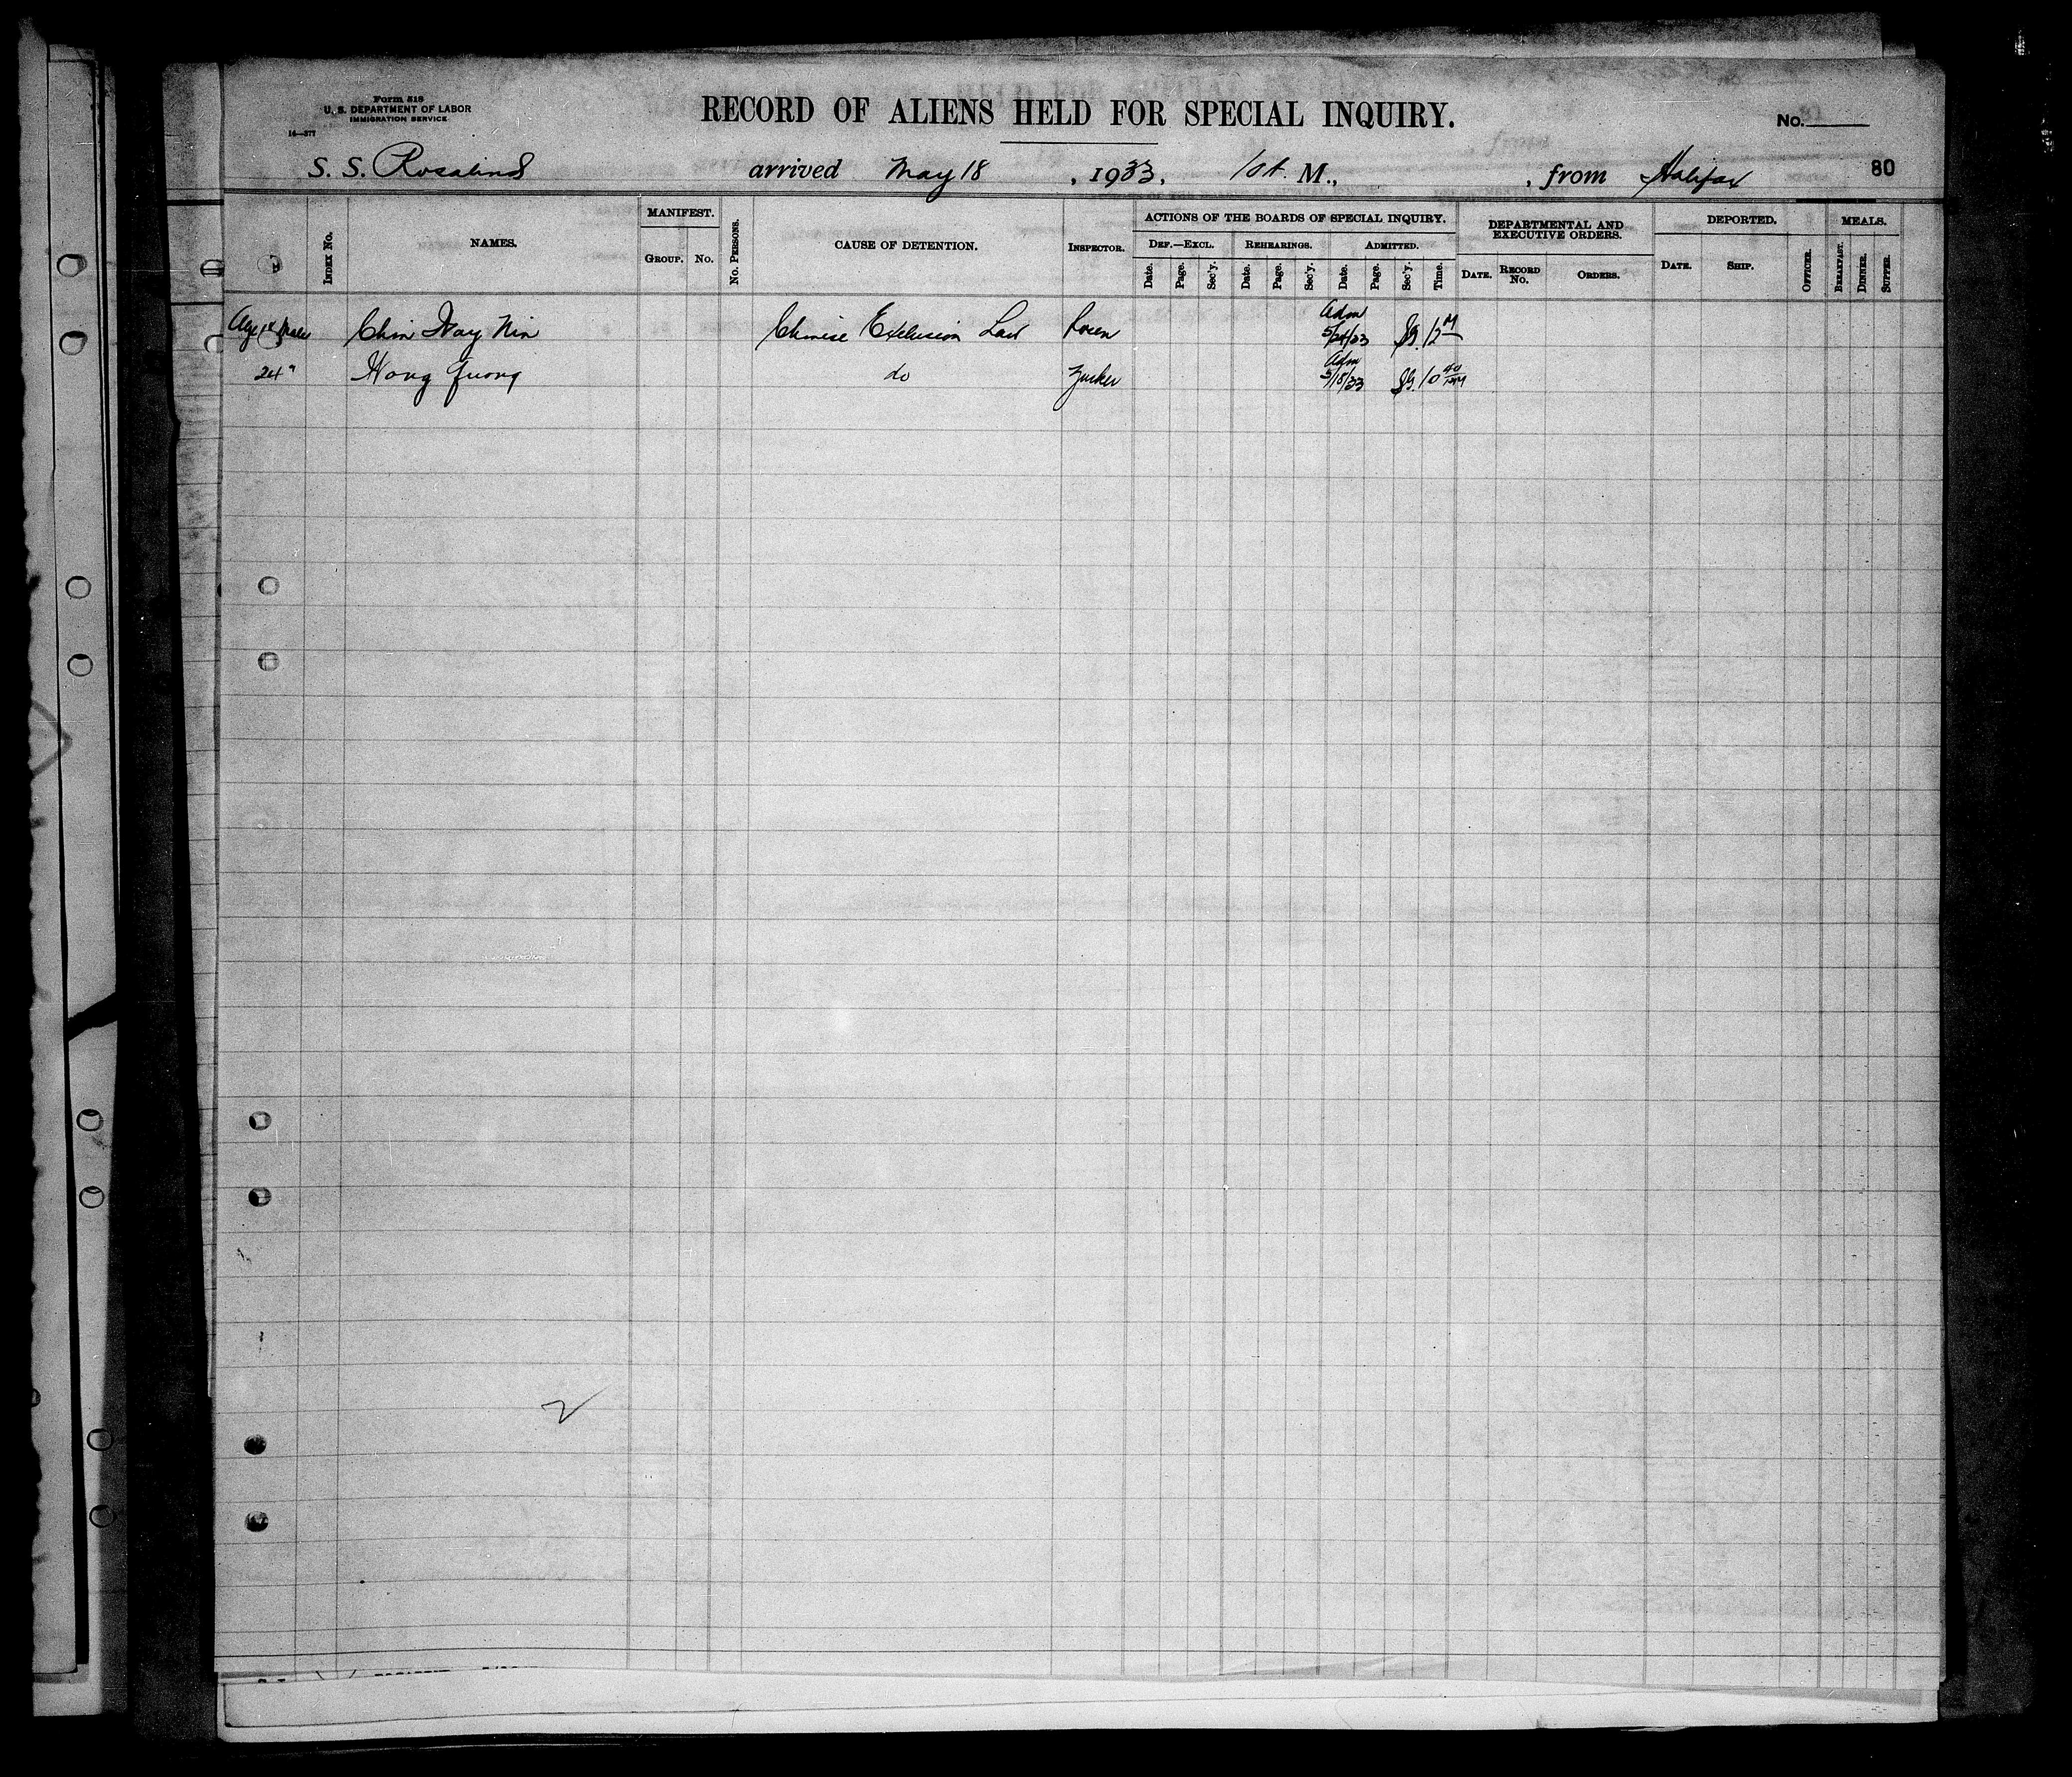 Form 518
U. S. DEPARTMENT OF LABOR
IMMIGRATION SERVICE
14—377
RECORD OF ALIENS HELD FOR SPECIAL INQUIRY.
No.
S. S. Rosalind arrived May 18, 1933, 10 A. M., , from Halifax
80
INDEX No. NAMES. MANIFEST. GROUP. No. No. PERSONS. CAUSE OF DETENTION. INSPECTOR. ACTIONS OF THE BOARDS OF SPECIAL INQUIRY. DEPARTMENTAL AND EXECUTIVE ORDERS. DEPORTED. MEALS.
DEF.—EXCL. REHEARINGS. ADMITTED.
Date. Page. Sec'y. Date. Page. Sec'y. Date. Page. Sec'y. Time. DATE. RECORD No. ORDERS. DATE. SHIP. OFFICER. BREAKFAST. DINNER. SUPPER.
Age Male Chin Way Nin Chinese Exclusion Law Rosen Adm 5/24/33 12 M
24 " Wong Quong do Zucker Adm 5/18/33 10 40
2